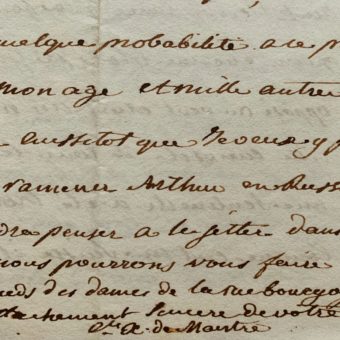 quelque probabilité a ce p
mon age et mille autre
aussitot que Je veux y p
ramener Arthur en Russ
dre penser a le jetter dans
nous pourrons vous faire
ieds des dames de la rue bourgog
ttachement sincere de votre
X. de Maistre